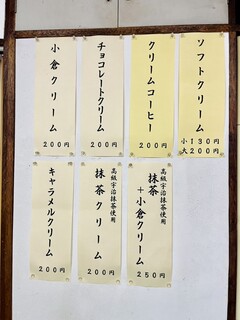 ソフトクリーム
小130円
大200円
クリームコーヒー
200円
チョコレートクリーム
200円
小倉クリーム
200円
高級宇治抹茶使用
抹茶+小倉クリーム
250円
高級宇治抹茶使用
抹茶クリーム
200円
キャラメルクリーム
200円